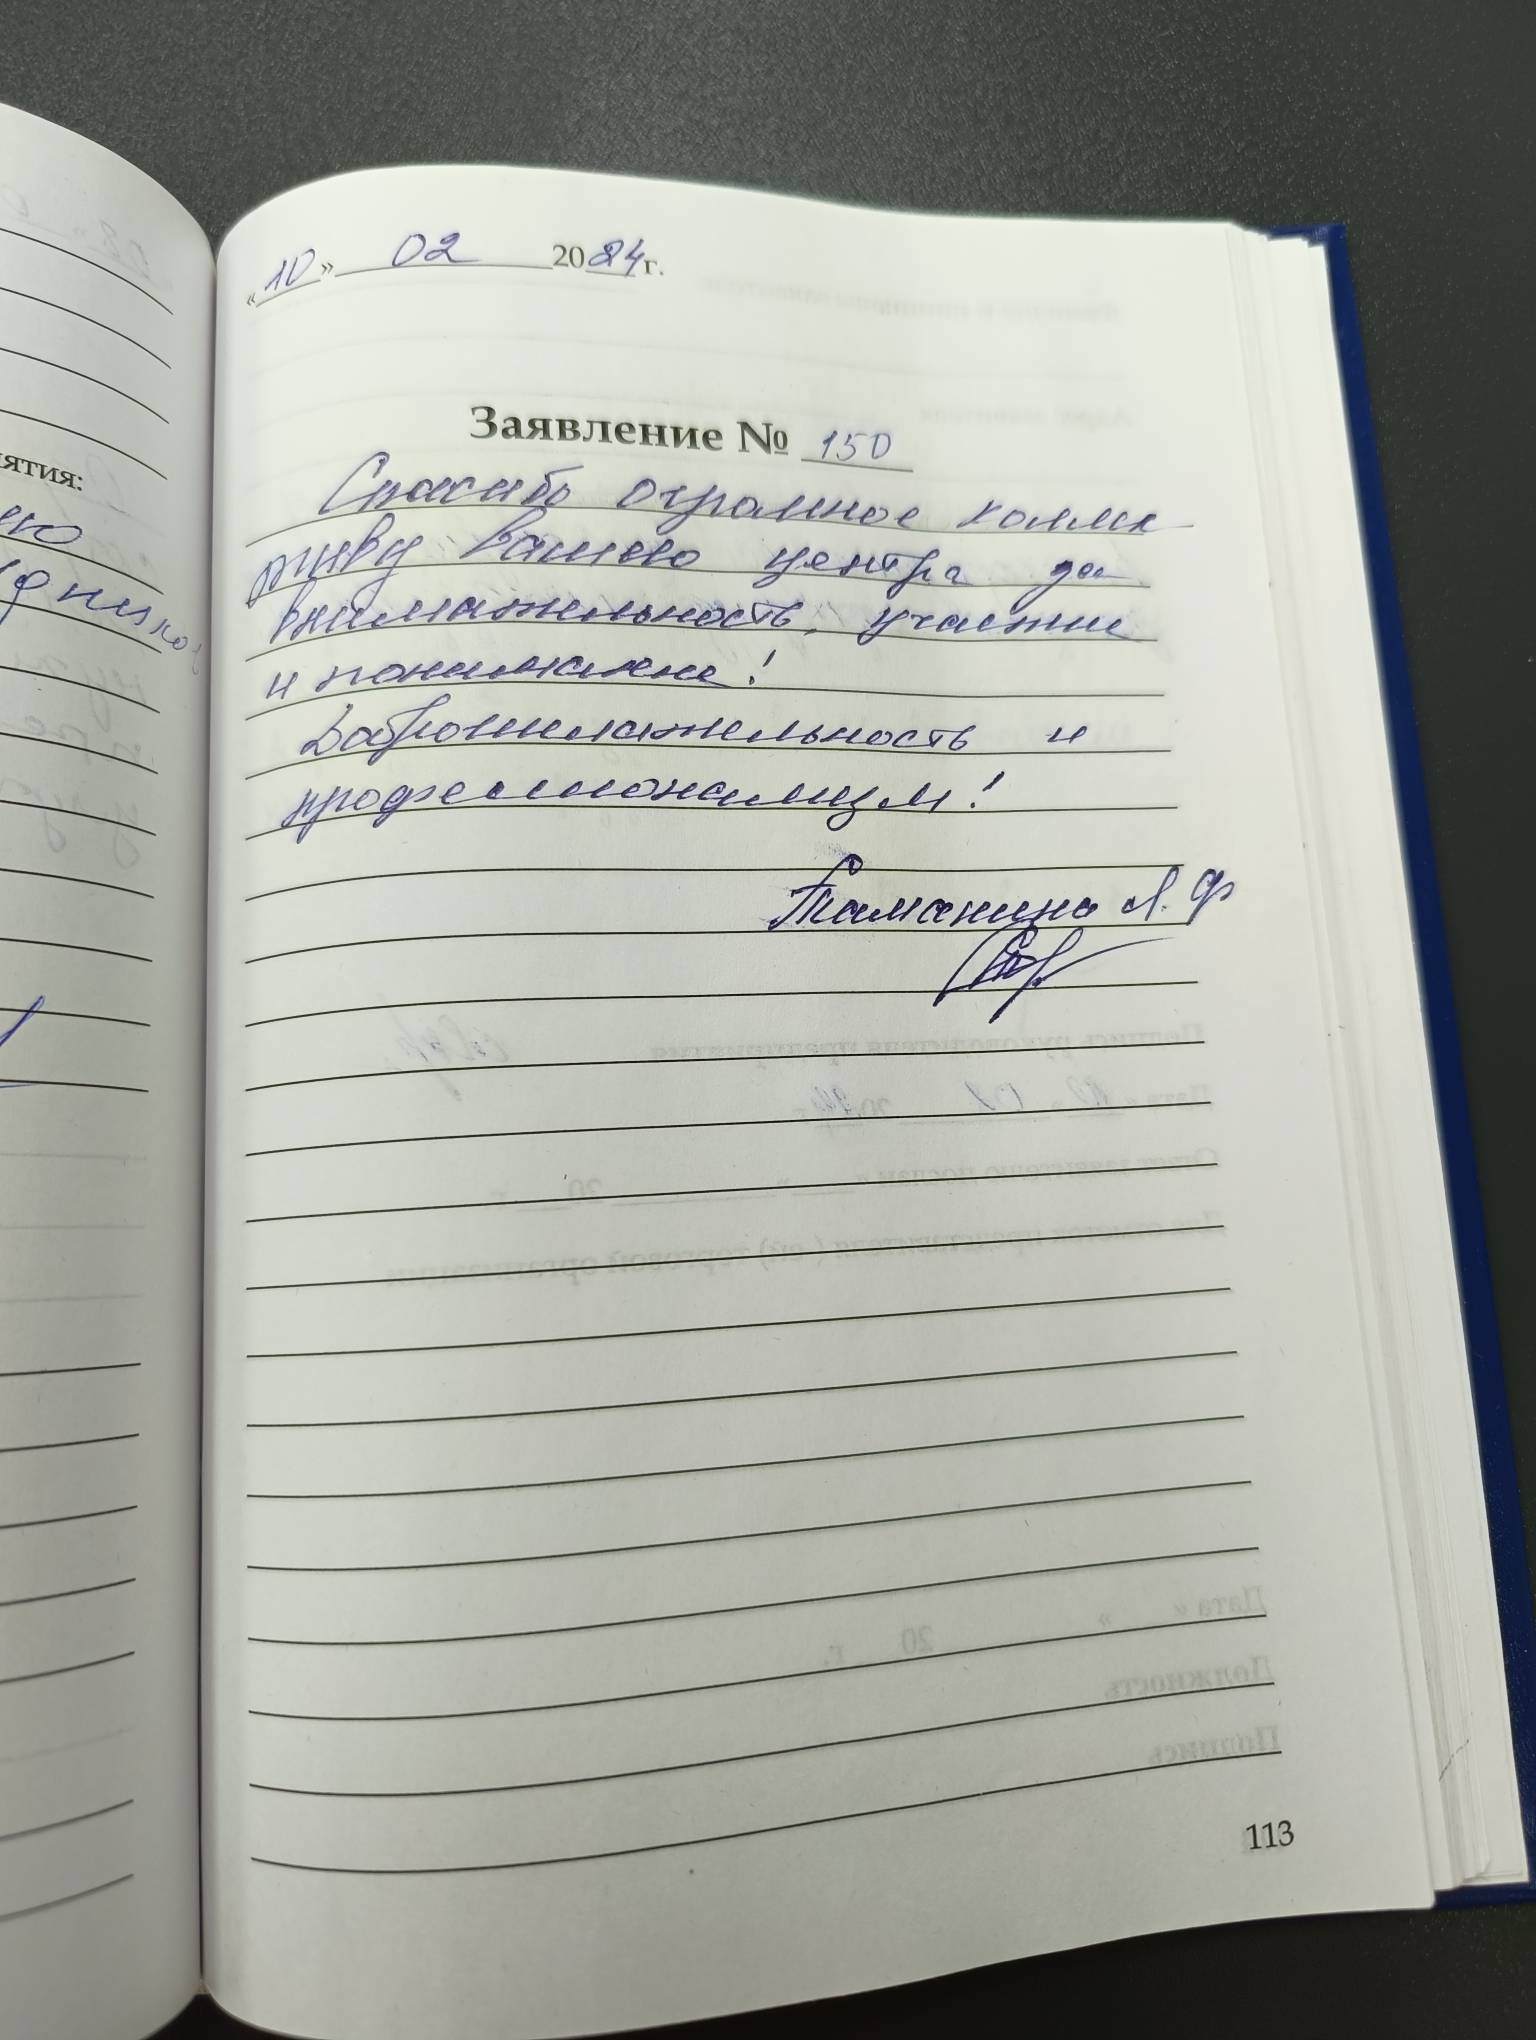 «10» 02 2024г.
ятия:
Заявление № 150
Спасибо огромное колле
ктиву вашего центра за
внимательность, участие
и понимание!
Доброжелательность и
профессионализм!
Таманина Л. Ф
113